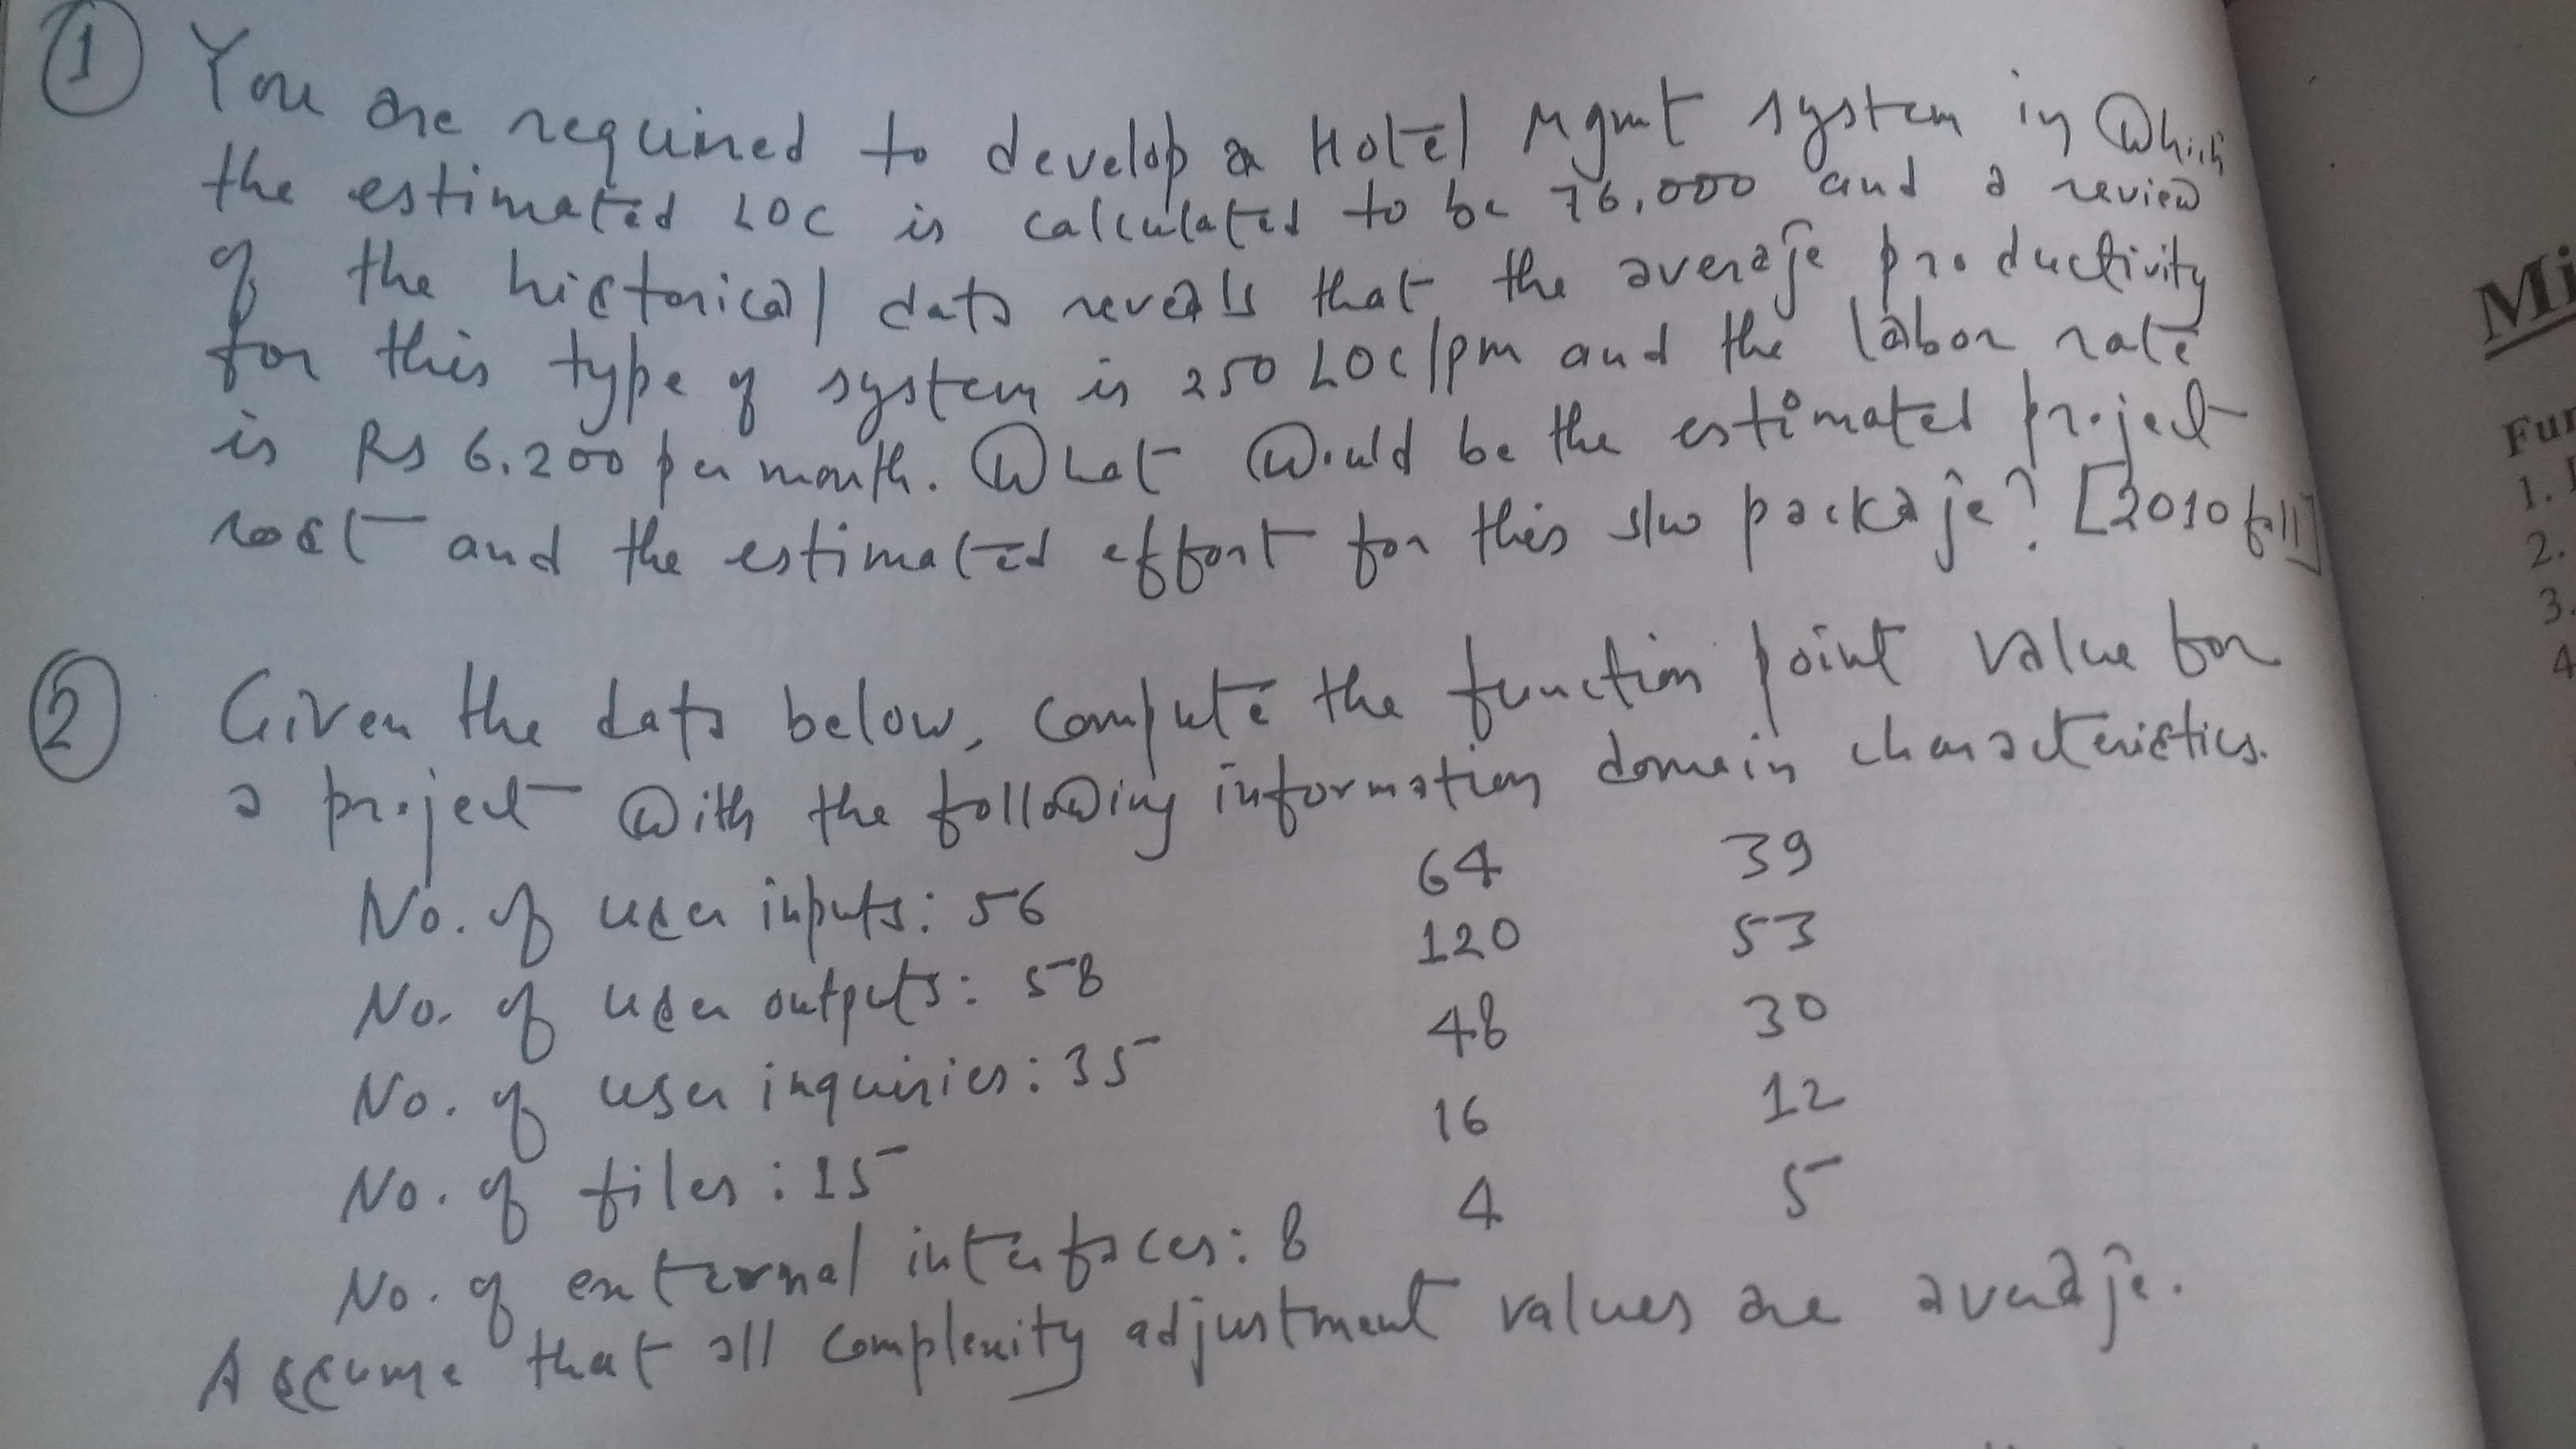 1 You are required to develop a Hotel Mgmt system in which
the estimated LOC is calculated to be 76,000 and a review
of the historical data reveals that the average productivity
for this type of system is 250 LOC/pm and the labor rate
is Rs 6,200 per month. What would be the estimated project
cost and the estimated effort for this s/w package? [2010 fall]
2 Given the data below, compute the function point value for
a project with the following information domain characteristics.
No. of user inputs: 56 64 39
No. of user outputs: 58 120 53
No. of user inquiries: 35 48 30
No. of files: 15 16 12
No. of external interfaces: 8 4 5
Assume that all complexity adjustment values are average.
Mi
Fu
1.
2.
3.
4